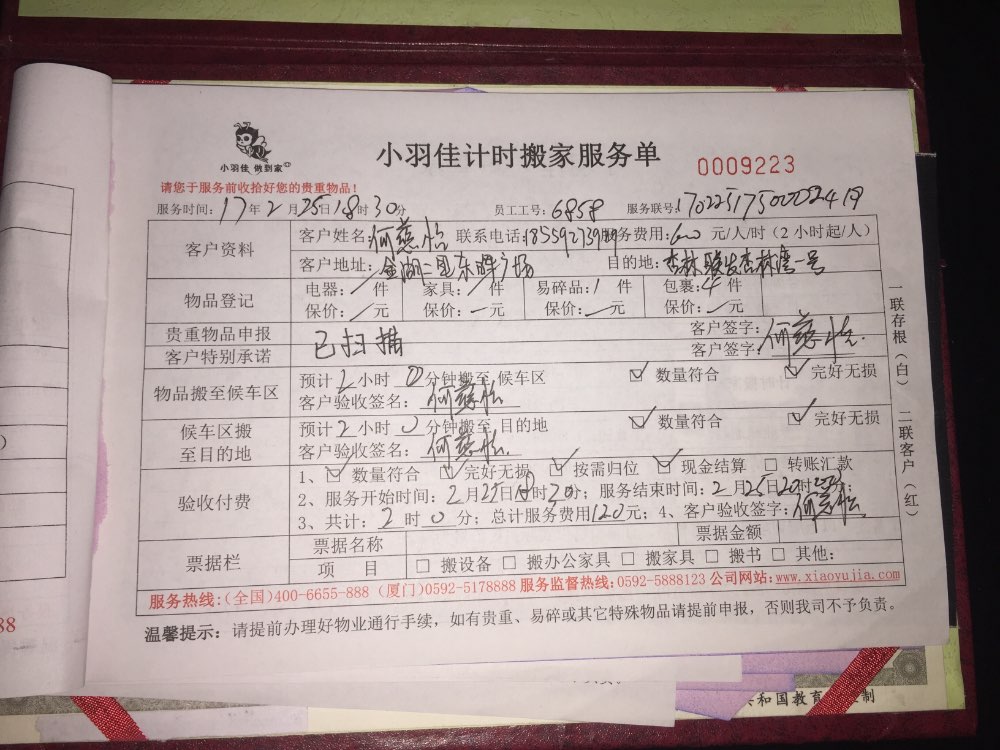 小羽佳 做到家
小羽佳计时搬家服务单 0009223
请您于服务前收拾好您的贵重物品!
服务时间: 17年2月25日18时30分 员工工号: 6858 服务联号:
客户资料 客户姓名: 何慈怡 联系电话: 服务费用: 元/人/时(2小时起/人)
客户地址: 金湖二里东晖广场 目的地: 杏林 杏林湾一号
物品登记 电器: 件 家具: 件 易碎品: 1 件 包裹: 4 件
保价: 元 保价: 元 保价: 元 保价: 元
贵重物品申报 已扫描 客户签字: 何慈怡
客户特别承诺 客户签字:
物品搬至候车区 预计2小时0分钟搬至 候车区 ☑ 数量符合 ☑ 完好无损
客户验收签名: 何慈怡
候车区搬至目的地 预计2小时0分钟搬至 目的地 ☑ 数量符合 ☑ 完好无损
客户验收签名: 何慈怡
验收付费 1、☑ 数量符合 ☑ 完好无损 ☑ 按需归位 ☑ 现金结算 □ 转账汇款
2、服务开始时间: 2月25日18时30分; 服务结束时间: 2月25日20时
3、共计: 2时0分; 总计服务费用120元; 4、客户验收签字: 何慈怡
票据栏 票据名称 票据金额
项 目 □ 搬设备 □ 搬办公家具 □ 搬家具 □ 搬书 □ 其他:
服务热线:(全国)400-6655-888 (厦门)0592-5178888 服务监督热线:0592-5888123 公司网站:www.xiaoyujia.com
温馨提示: 请提前办理好物业通行手续,如有贵重、易碎或其它特殊物品请提前申报,否则我司不予负责。
一联存根(白) 二联客户(红)
88
和国教育 制